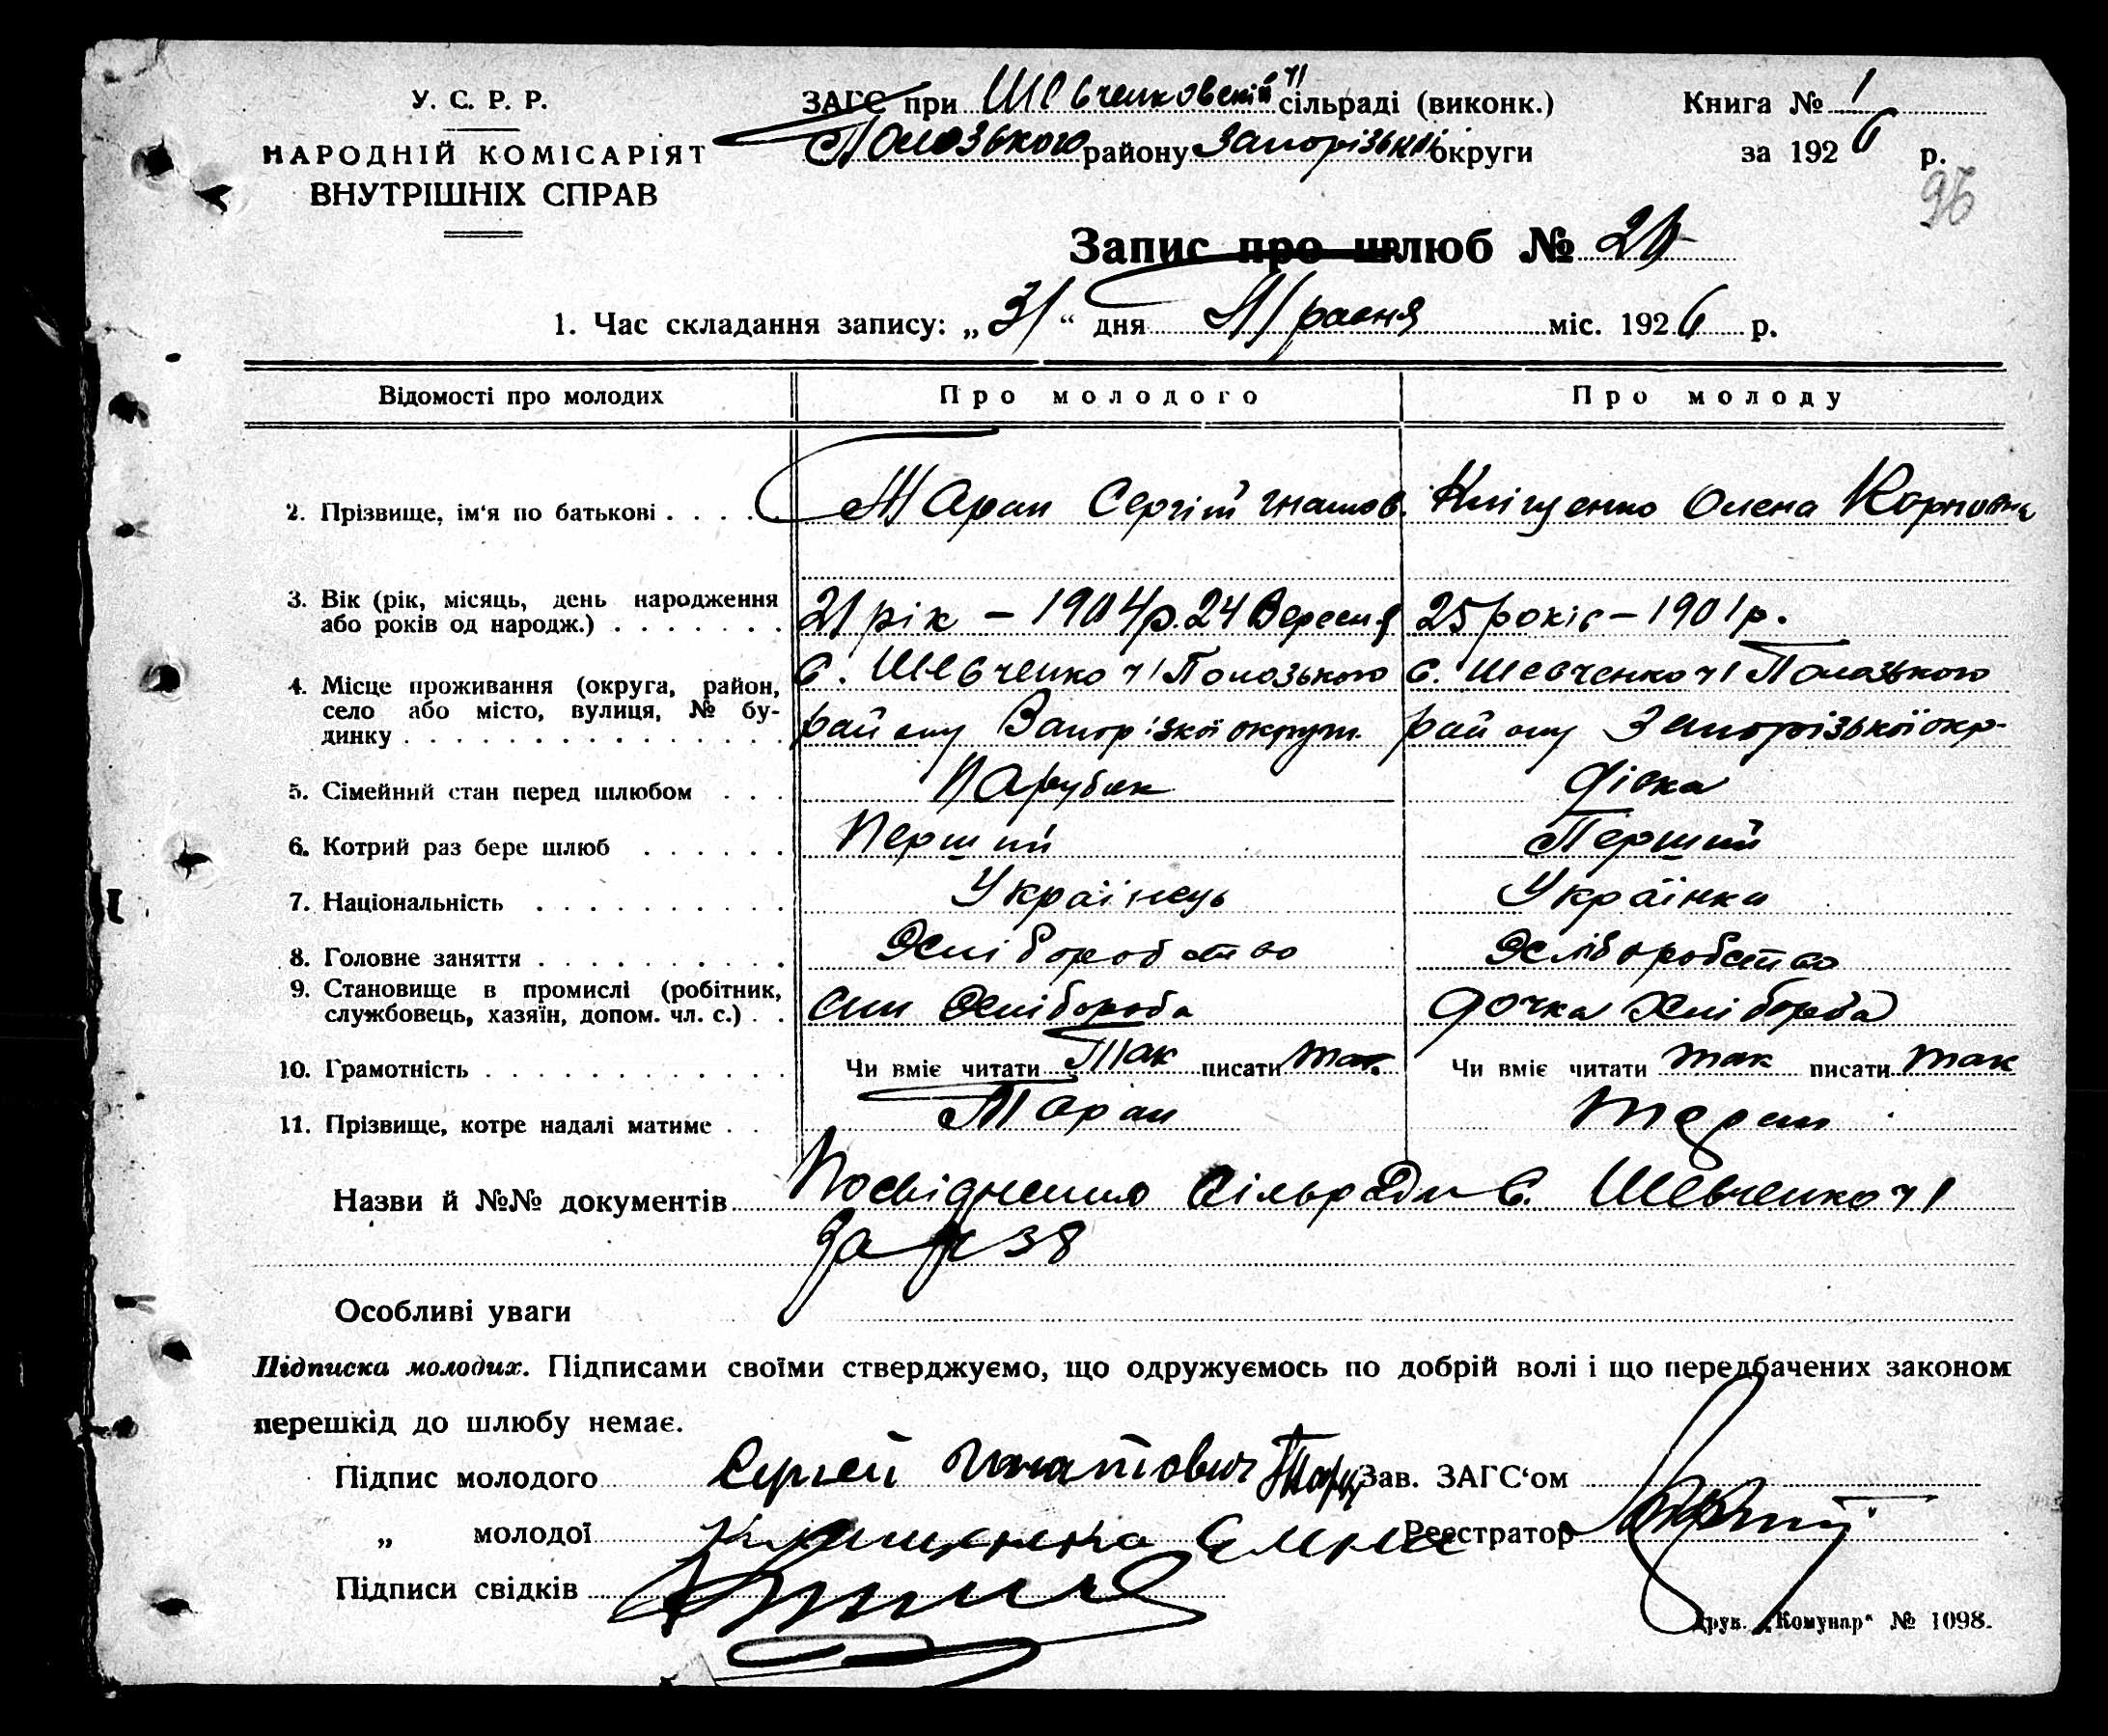 У. С. Р. Р.
НАРОДНІЙ КОМІСАРІЯТ
ВНУТРІШНІХ СПРАВ
ЗАГС при Шевченковскій ч1 сільраді (виконк.)
Пологзького району Запорізької округи
Книга № 1
за 1926 р.
96
Запис про шлюб №
1. Час складання запису: „31“ дня Травня міс. 1926 р.
Відомості про молодих Про молодого Про молоду
2. Прізвище, ім'я по батькові . . . . . Таран Сергій Гнатов. Кліщенко Олена Карповна
3. Вік (рік, місяць, день народження
або років од народж.) . . . . . . . 21 рік – 1904р. 24 Вересня 25 років – 1901р.
4. Місце проживання (округа, район, с. Шевченко ч1 Полозького с. Шевченко ч1 Полозького
село або місто, вулиця, № бу-
динку . . . . . . . . . . . . . . . району Запорізкої округи району Запорізької окр-
5. Сімейний стан перед шлюбом . . . Парубок Дівка
6. Котрий раз бере шлюб . . . . . . Перший Перший
7. Національність . . . . . . . . . . Українець Українка
8. Головне заняття . . . . . . . . . . Хліборобство Хліборобство
9. Становище в промислі (робітник,
службовець, хазяїн, допом. чл. с.) . . Син Хлібороба Дочка Хлібороба
10. Грамотність . . . . . . . . . . . . Чи вміє читати Так писати так. Чи вміє читати так писати так
11. Прізвище, котре надалі матиме . . Таран Таран
Назви й №№ документів Посвідчення Сільради с. Шевченко ч1
За № 38
Особливі уваги
Підписка молодих. Підписами своїми стверджуємо, що одружуємось по добрій волі і що передбачених законом
перешкід до шлюбу немає.
Підпис молодого Сергей Игнатович Таран Зав. ЗАГС‘ом
„ молодої Реєстратор
Підписи свідків
Друк. „Комунар“ № 1098.